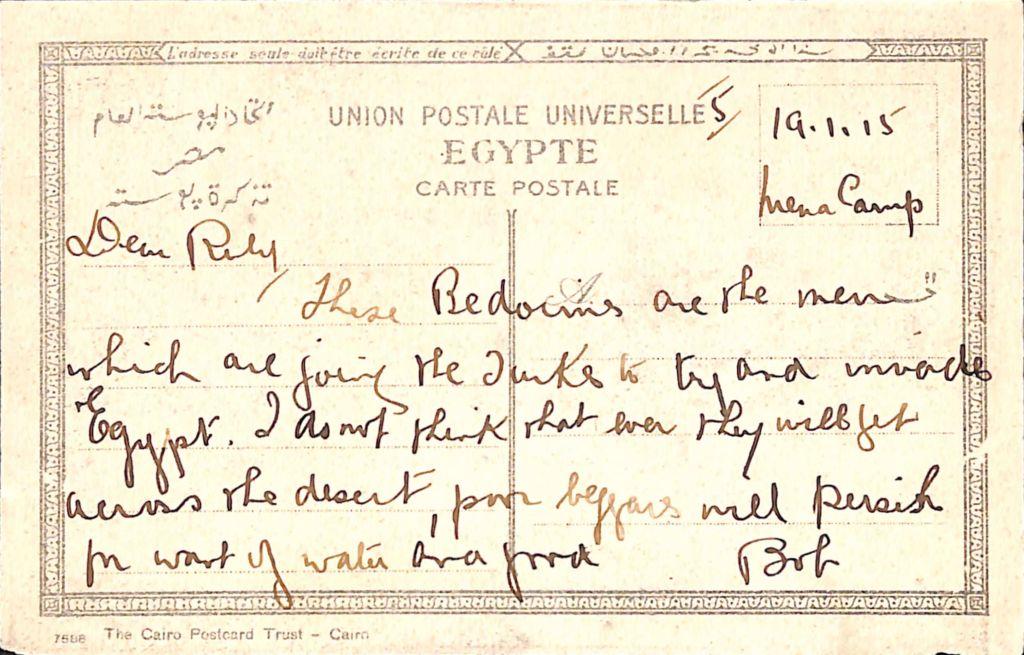 L'adresse seule doit être écrite de ce côté
اتحاد البوستة العام
مصر
تذكرة بوستة
UNION POSTALE UNIVERSELLE
EGYPTE
CARTE POSTALE
5
19.1.15
Mena Camp
Dear Ruby,
These Bedocins are the men
which are joing the Turkes to try and invade
Egypt. I do not think that ever they will get
across the desert, poor beggars will perish
for want of water and food
Bob
7588 The Cairo Postcard Trust - Cairo